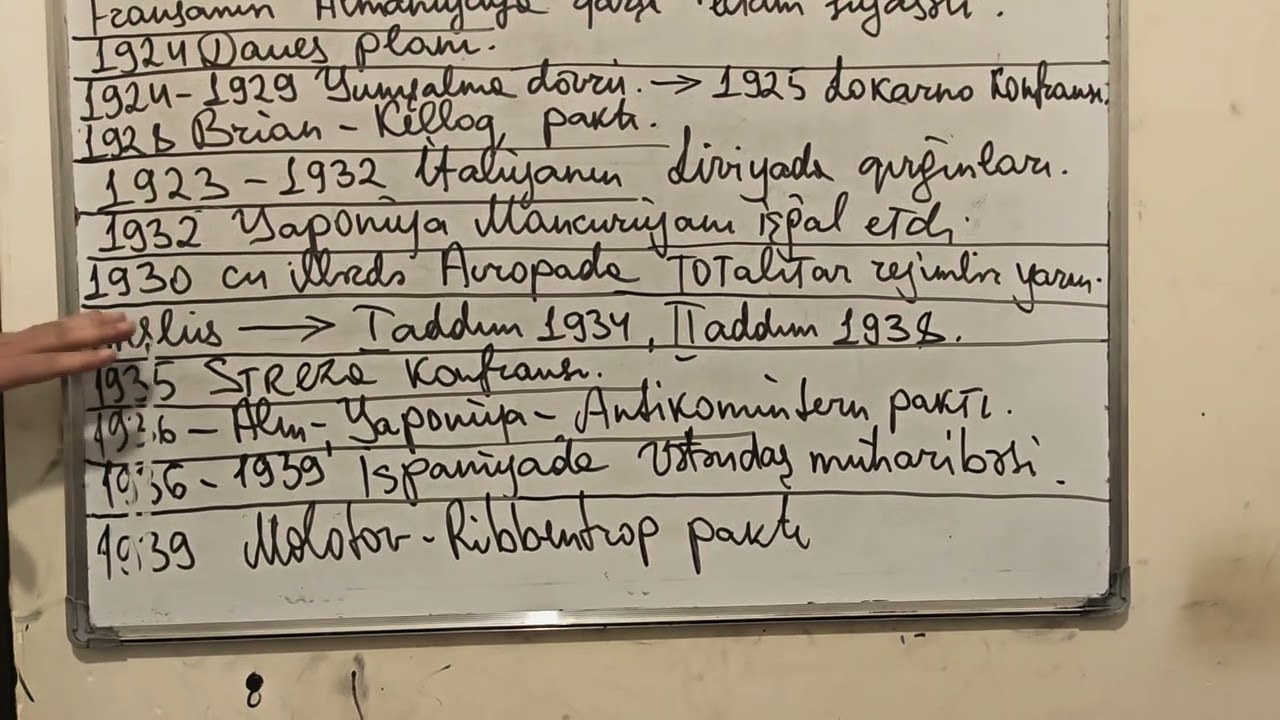 Fransanın Almaniyaya qarşı siyasəti.
1924 Daues planı.
1924-1929 Yumşalma dövrü. → 1925 Lokarno Konfransı.
1928 Brian-Kellog paktı.
1923-1932 İtaliyanın Liviyada qırğınları.
1932 Yaponiya Mancuriyanı işğal etdi.
1930 cu illərdə Avropada TOTALİTAR rejimlər yaran.
→ I addım 1934, II addım 1938.
1935 STREZA Konfransı.
1936 - Alm-Yaponiya-Antikomintern paktı.
1936-1939 İspaniyada Vətəndaş müharibəsi.
1939 Molotov-Ribbentrop paktı
8